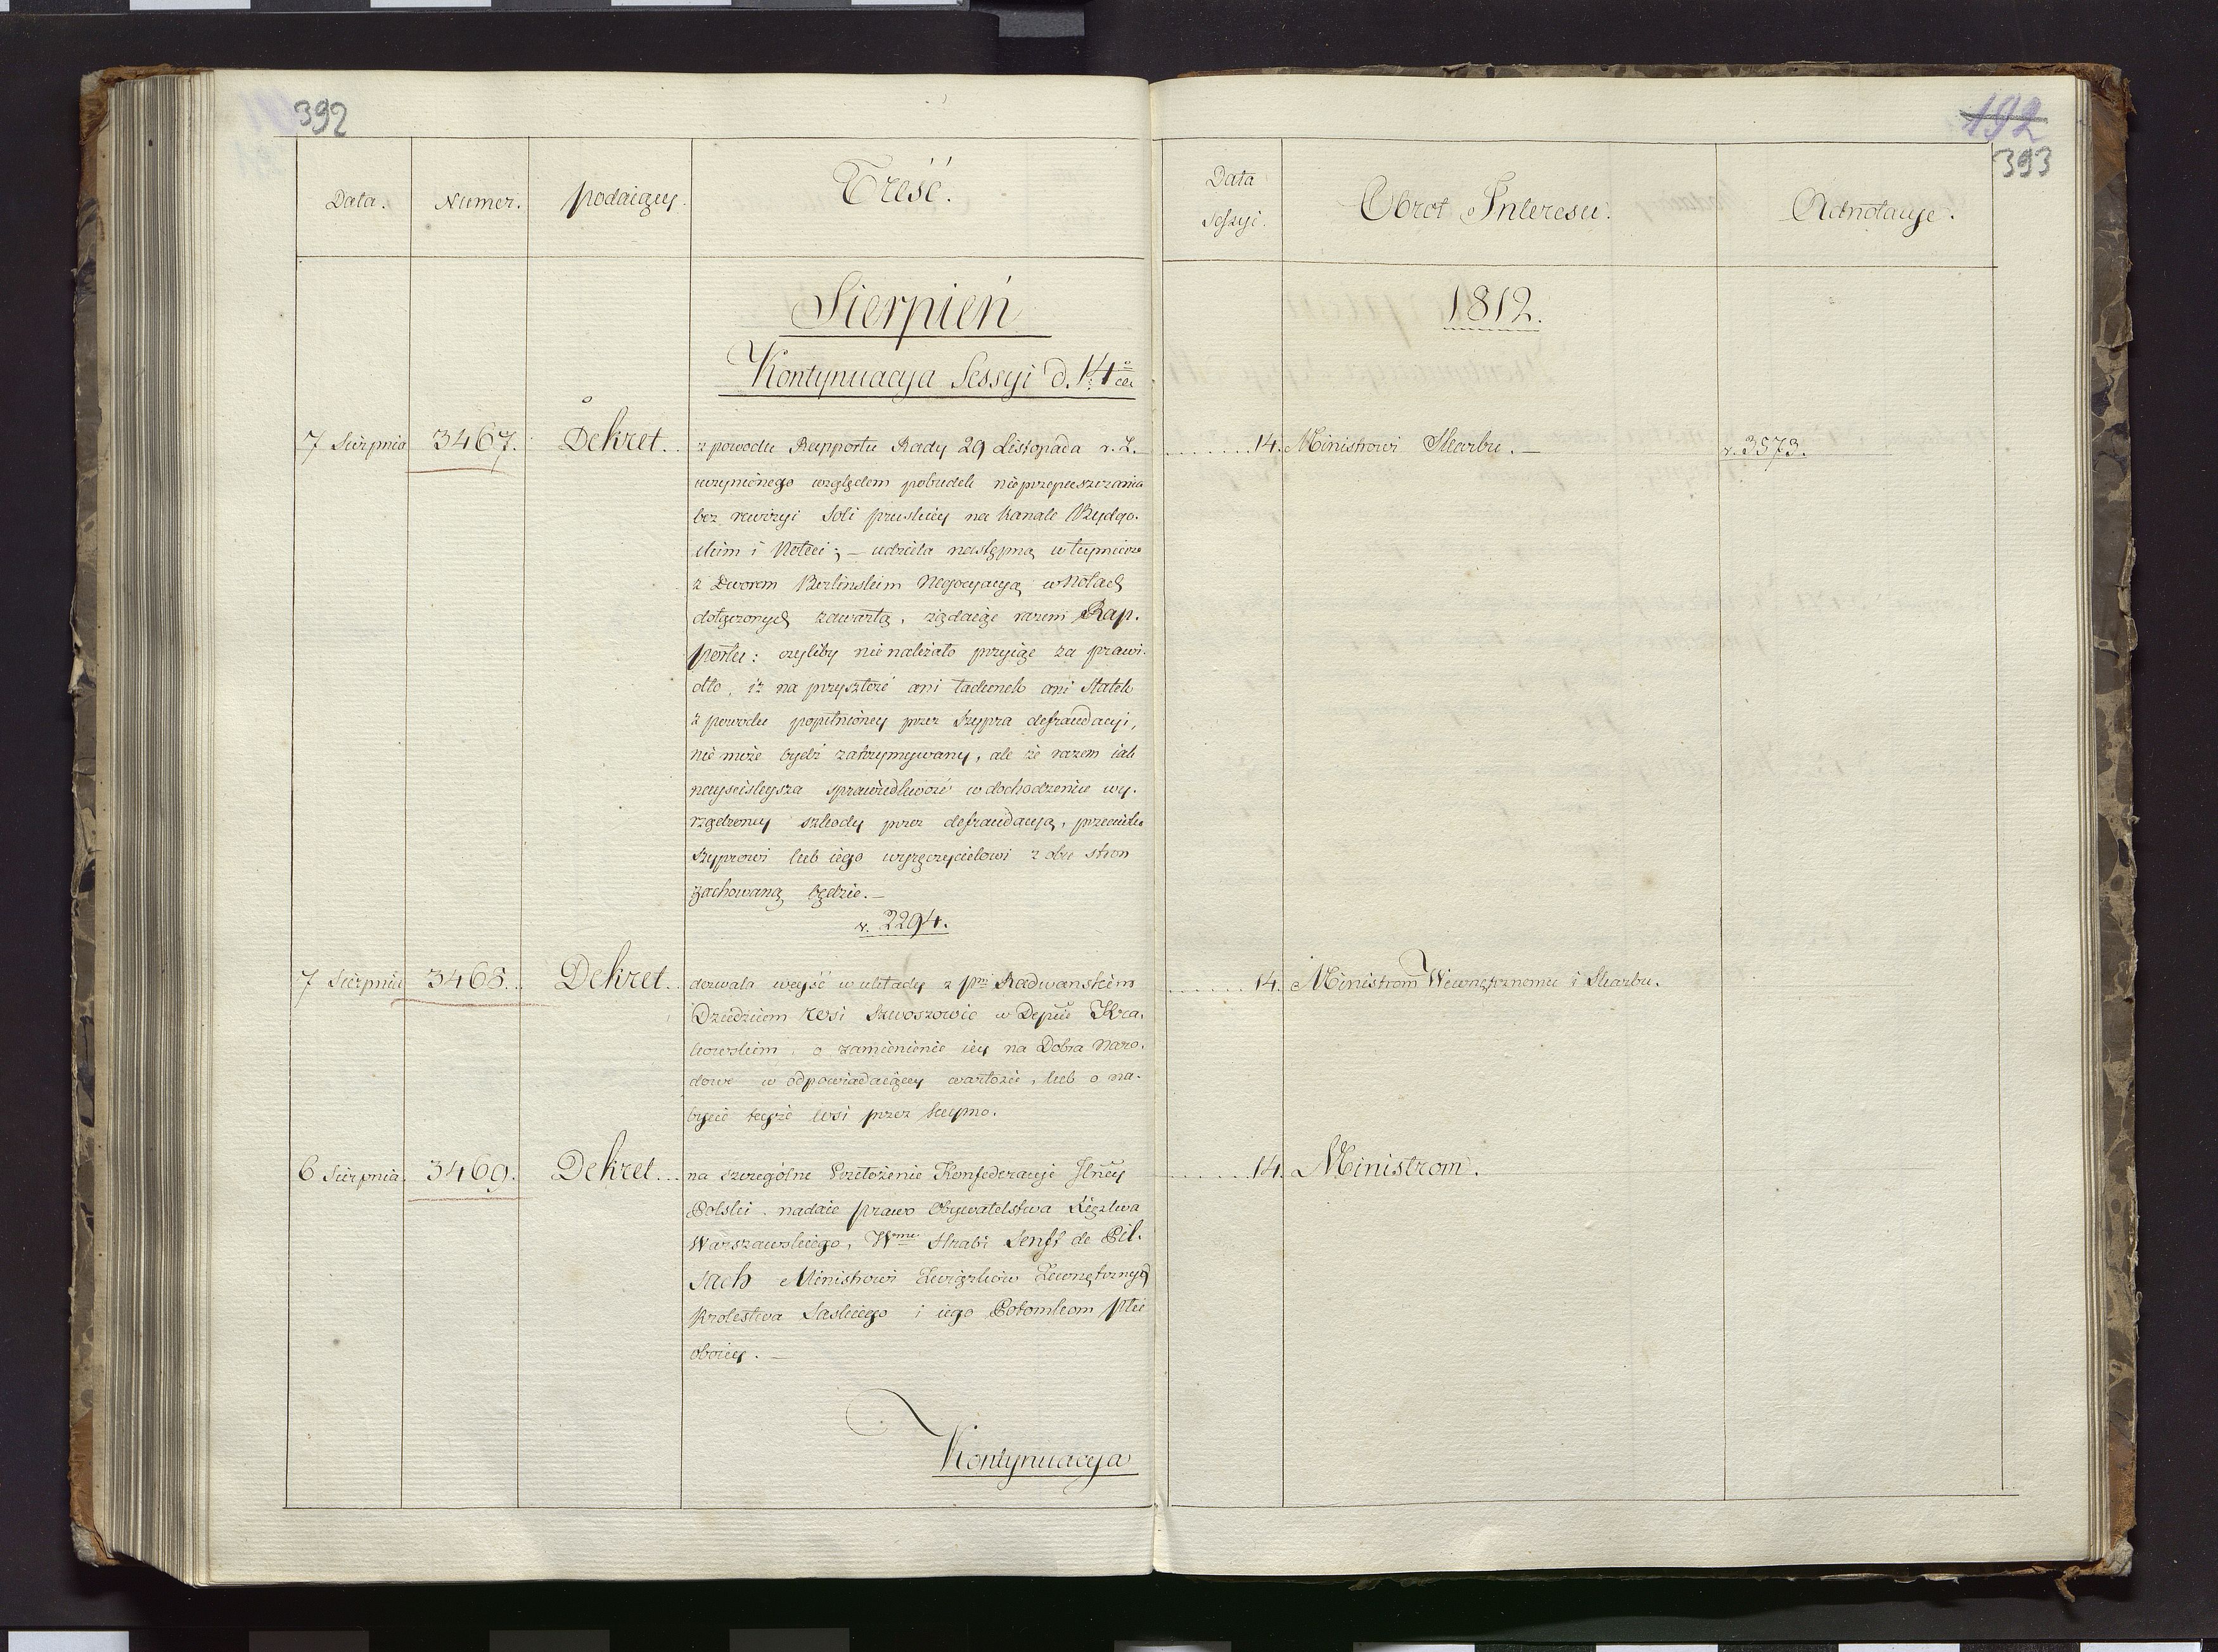 392
Data.
Numer.
podaiący.
Treść.
Sierpień
Kontynuacya Sessyi d. 14
7 Sierpnia 3467. Dekret.. z powodu Rapportu Rady 29 Listopada r. z.
uczynionego względem pobudek nieprzepuszczania
bez rewizyi Soli pruskiey na Kanale Bydgo-
skim i Noteci; – udziela następną w tey mierze
z Dworem Berlinskim Negocyacyą w Notach
dołączonych zawartą, żądaiąc razem Rap-
portu: czyliby nie należało przyiąć za prawi-
dło, iż na przyszłość ani ładunek ani Statek
z powodu popełnioney przez Szypra defraudacyi,
nie może bydź zatrzymywany, ale że razem iak
nayściśleysza sprawiedliwość w dochodzeniu wy-
rządzoney szkody przez defraudacyą, przeciwko
Szyprowi lub iego wyręczycielowi z obu stron
zachowaną będzie. –
v. 2294.
7 Sierpnia 3468.. Dekret.. dozwala weyść w układy z pm Radwanskim
Dziedzicem wsi Swoszowic w Depcie Kra-
kowskim, o zamienienie iey na Dobra Naro-
dowe w odpowiadaiącey wartości, lub o na-
bycie teyże wsi przez kupno.
6 Sierpnia. 3469. Dekret... na szczególne Przełożenie Konfederacyi Jlney
Polski, nadaie prawo Obywatelstwa Xięztwa
Warszawskiego, Wmu Hrabi Senft de Pil-
sach Ministrowi Związków Zewnętrznych
Krolestwa Saskiego i iego Potomkom płci
oboiey. –
Kontynuacya
192
393
Data
Seszyi.
Obrot Interesu.
Adnotacye.
1812.
14. Ministrowi Skarbu. – v. 3573.
14. Ministrom Wewnętrznemu i Skarbu.
14. Ministrom.